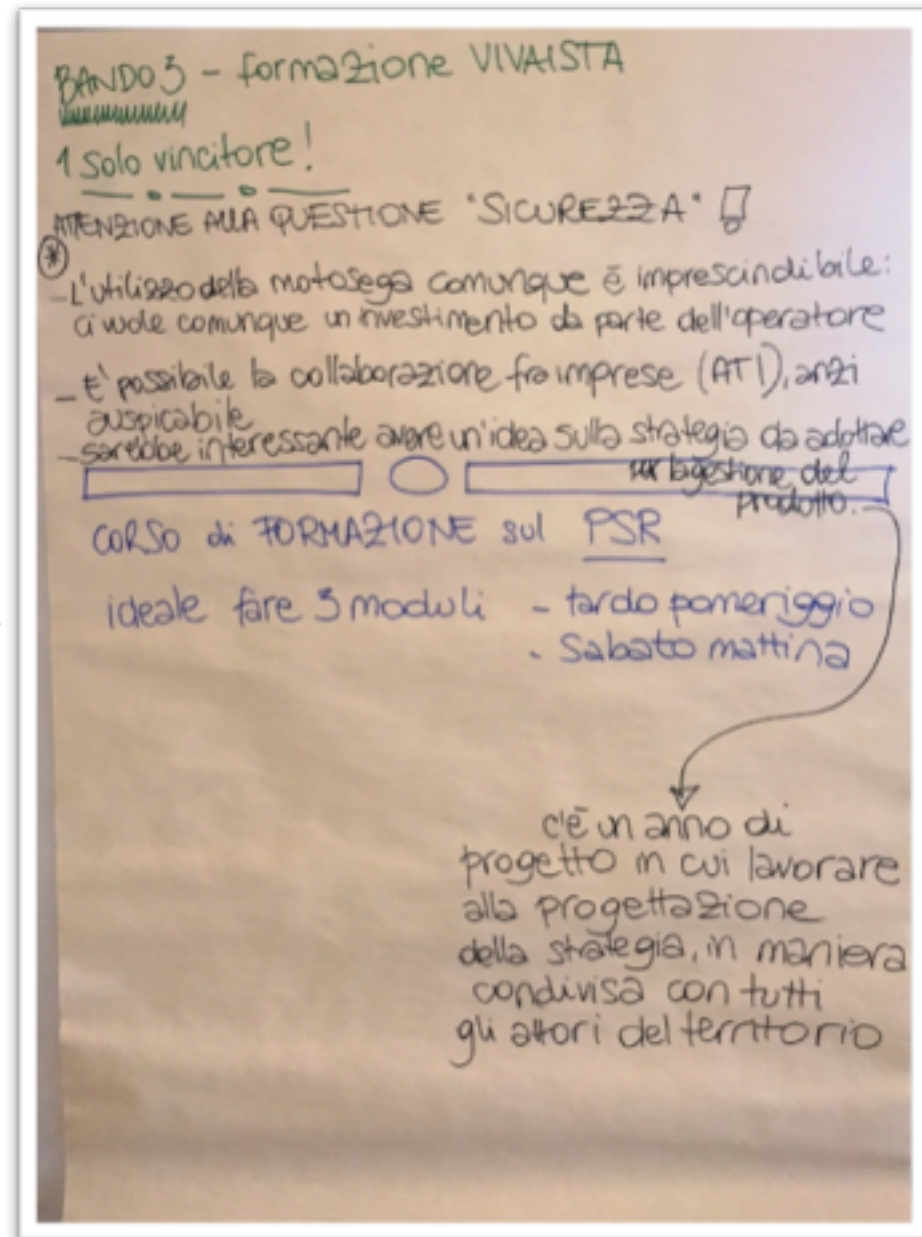 BANDO 3 - formazione VIVAISTA
1 solo vincitore!
ATTENZIONE ALLA QUESTIONE "SICUREZZA"
*
- L'utilizzo della motosega comunque è imprescindibile:
ci vuole comunque un investimento da parte dell'operatore
- E' possibile la collaborazione fra imprese (ATI), anzi
auspicabile
- sarebbe interessante avere un'idea sulla strategia da adottare
per la gestione del
prodotto.
CORSO di FORMAZIONE sul PSR
ideale fare 3 moduli - tardo pomeriggio
- Sabato mattina
c'è un anno di
progetto in cui lavorare
alla progettazione
della strategia, in maniera
condivisa con tutti
gli attori del territorio